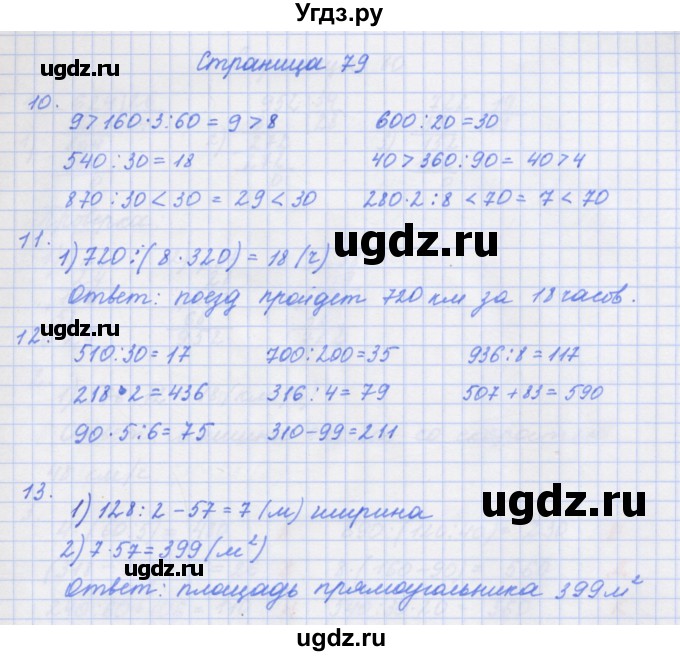 Угдз.ру
Страница 79
ugdz.ru
ugdz.ru
10.
9>160·3:60 = 9>8 600:20=30
540:30=18 40>360:90= 40>4
870:30<30 = 29<30 280·2:8<70= 7<70
ugdz.ru
11.
1) 720:(8·320) = 18 (ч)
Ответ: поезд пройдет 720 км за 18 часов.
ugdz.ru
ugdz.ru
12.
510:30=17 700:200=35 936:8=117
218·2=436 316:4=79 507+83=590
90·5:6=75 310-99=211
13.
1) 128:2-57=7 (м) ширина
2) 7·57=399 (м²)
ugdz.ru
ugdz.ru
Ответ: площадь прямоугольника 399м²
ugdz.ru